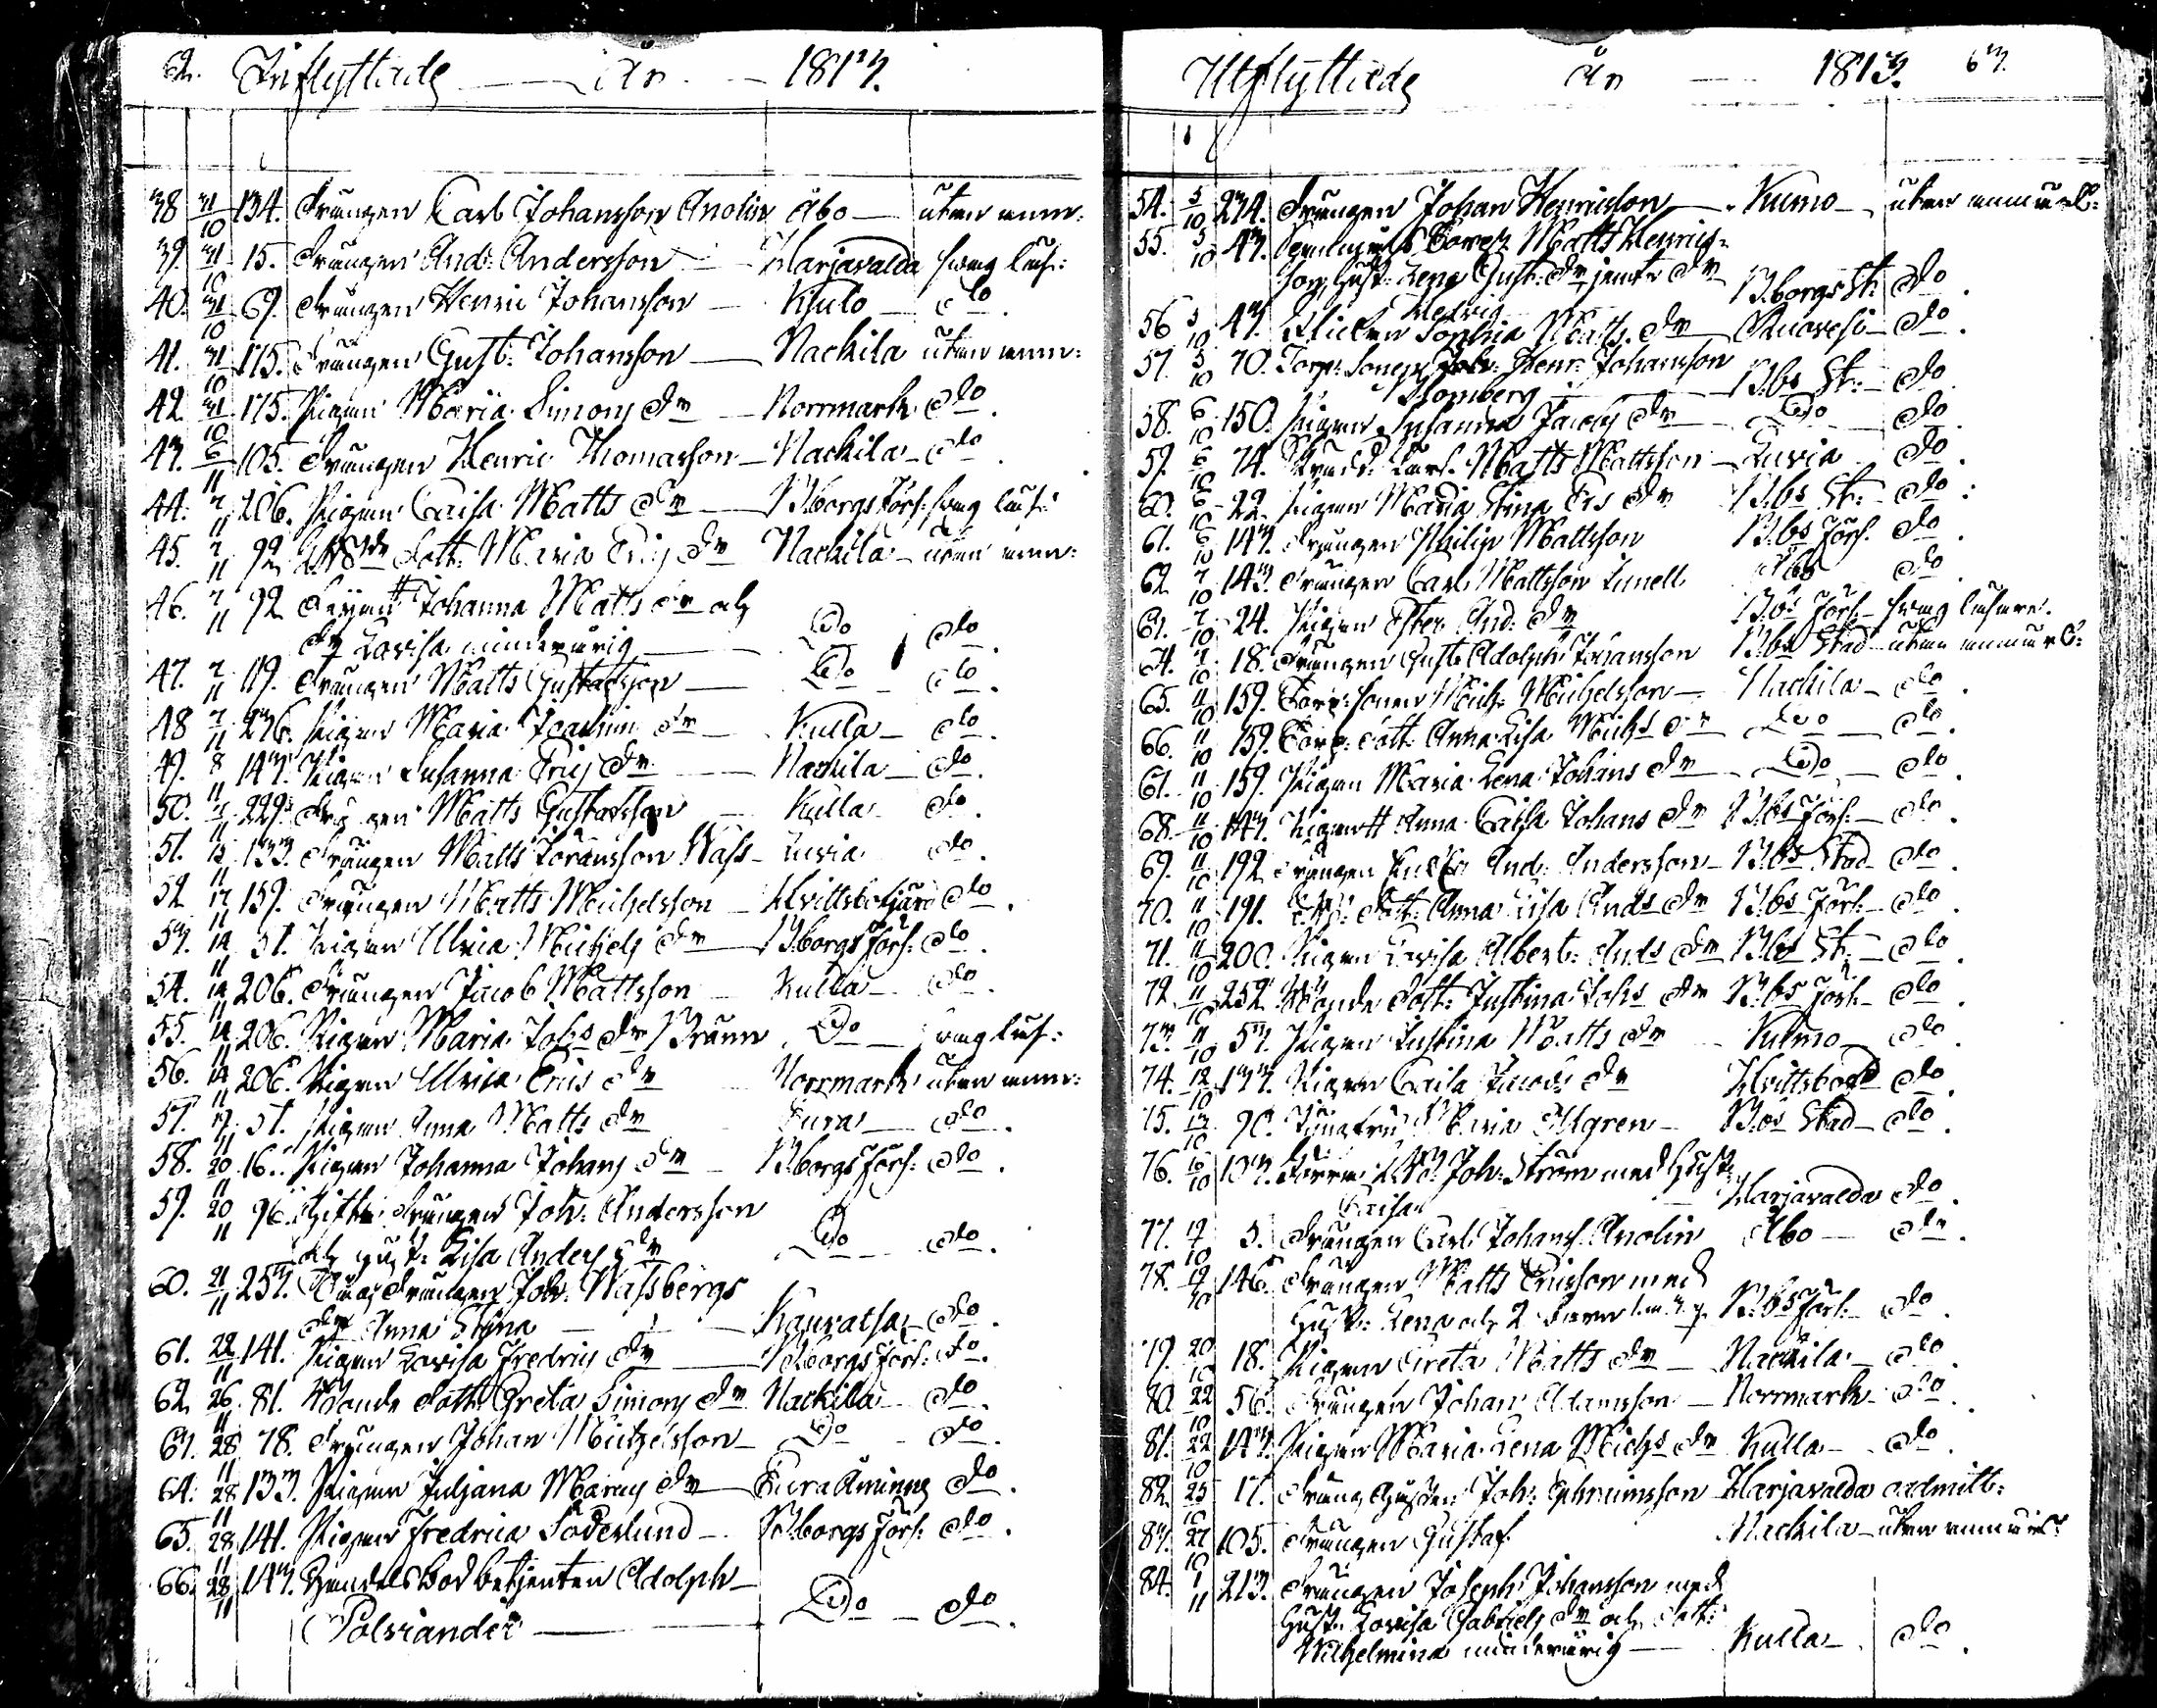 62. Inflyttade — År — 1813.
38 31/10 134. Drängen Carl Johansson Anolin Åbo — utan anm:
39. 31/10 15. Drängen And: Andersson — Harjavalda swag läsn:
40. 31/10 69. Drängen Henric Johansson — Kjulo — do.
41. 31/10 175. Drängen Gust: Johansson — Nackila utan anm:
42 31/10 175. Pigan Maria Simons dr — Norrmark do.
43. 6/11 105. Drängen Henric Thomasson — Nackila — do.
44. 7/11 206. Pigan Caisa Matts dr — B:borgs förs: swag läsn:
45. 7/11 92 Dott: Maria Erics dr Nackila — utan anm:
46. 7/11 92 Johanna Matts dr och
dr Lovisa minderårig — Do do.
47. 7/11 119. Drängen Matts Gustafsson — Do — do.
48 7/11 236. Pigan Maria Joachim dr — Kulla — do.
49. 8/11 143. Pigan Susanna Erics dr — Nackila — do.
50. 229. Drängen Matts Gustafsson — Kulla do.
51. 15/11 133. Drängen Matts Göransson Wass — Luvia do.
52 17/11 159. Drängen Matts Michelsson — Hvittisbofjärd do.
53. 14/11 51. Pigan Ulrica Michels dr — B:borgs förs: do.
54. 14/11 206. Drängen Jacob Mattsson — Kulla — do.
55. 14/11 206. Pigan Maria Johs dr Brunn Do — swag läsn:
56. 14/11 206. Pigan Ulrica Erics dr Norrmark utan anm:
57. 17/11 51. Pigan Anna Matts dr Eura — do.
58. 20/11 16. Pigan Johanna Johans dr — B:borgs förs: do.
59. 20/11 96. Gifte Drängen Joh: Andersson
och hust: Lisa Anders dr Do — do.
60. 21/11 253. Drängen Joh: Wassbergs
dr Anna Stina — Kauvatsa — do.
61. 22/11 141. Pigan Lovisa Fredrics dr — B:borgs förs: do.
62. 26/11 81. Bonde dott: Greta Simons dr Nackila — do.
63. 28/11 78. Drängen Johan Michelsson — Do — do.
64. 28/11 133. Pigan Juljana Marcus dr — Eura Åminne do.
65. 28/11 141. Pigan Fredrica Söderlund — B:borgs förs: do.
66. 28/11 143. Handels Bod betjenten Adolph —
Polviander — Do — do.
Utflyttade År — 1813. 63.
54. 5/10 234. Drängen Johan Henricsson — Kumo — utan anmärk:
55. 5/10 43. Matts Henrics-
son, hust: Lena Gust: dr jemte dr
Hedvig B:borgs St: do.
56 5/10 43. Flickan Sophia Matts dr — Ruovesi — do.
57. 5/10 70. Torp: Sonen Joh: Henr: Johansson
Blomberg — B:bs St: — do.
58. 6/10 150. Pigan Susanna Jacobs dr — Do — do.
59. 6/10 74. Matts Mattsson — Luvia do.
60. 6/10 22. Pigan Maria Stina Ers dr B:bs St: — do:
61. 6/10 143. Drängen Philip Mattsson B:bs förs. do.
62 7/10 143. Drängen Carl Mattsson Lunell Åbo do.
63. 7/10 24. Pigan Ester And: dr B:bs förs — swag läsare.
64. 7/10 18. Drängen Gust: Adolph Göransson B:bs Stad — utan anmärk:
65. 11/10 159. Torp: Sonen Mich: Michelsson — Nackila — do.
66. 11/10 159. Torp: dott: Anna Lisa Michs dr — Do — do.
67. 11/10 159. Pigan Maria Lena Johans dr — Do — do.
68. 11/10 143. Pigan Anna Caisa Johans dr B:bs förs. — do.
69. 11/10 192 Drängen And: Andersson — B:bs Stad do.
70. 11/10 191. dott: Anna Lisa Ands dr B:bs förs. — do.
71. 11/10 200. Pigan Lovisa Albert: Ands dr B:bs St: — do.
72. 11/10 252. Bonde dott: Justina Johs dr B:bs förs. — do.
73. 11/10 53. Pigan Justina Matts dr — Kumo — do.
74. 12/10 133. Pigan Caisa Jacobs dr Hvittisbofd do.
75. 12/10 90. Jungfru Maria Ahlgren — B:bs Stad — do.
76. 16/10 103. Joh: Ström med hust:
Caisa — Harjavalda do.
77. 17/10 5. Drängen Carl Johanss: Anolin Åbo — do.
78. 19/10 146. Drängen Matts Ericsson med
hust: Lena och 2 barn B:bs förs. — do.
79. 20/10 18. Pigan Greta Matts dr — Nackila — do.
80. 22/10 56. Drängen Johan Adamsson — Norrmark — do.
81. 22/10 143. Pigan Maria Lena Michs dr Kulla — do.
82. 25/10 17. Joh: Ephraimsson Harjavalda admitt:
83. 27/10 105. Drängen Gustaf Nackila — utan anmärk:
84. 1/11 213. Drängen Joseph Johansson med
hust: Lovisa Gabriels dr och dott:
Wilhelmina minderårig — Kulla — do.